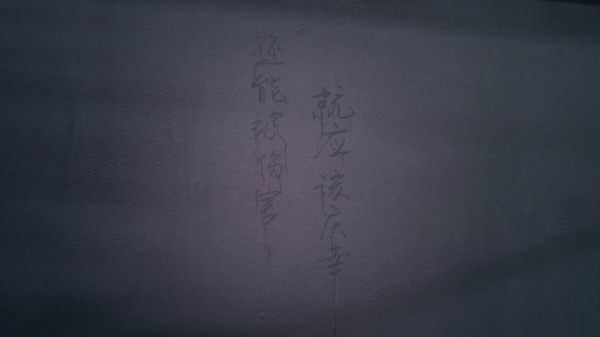 还能被伤害，
就应该庆幸